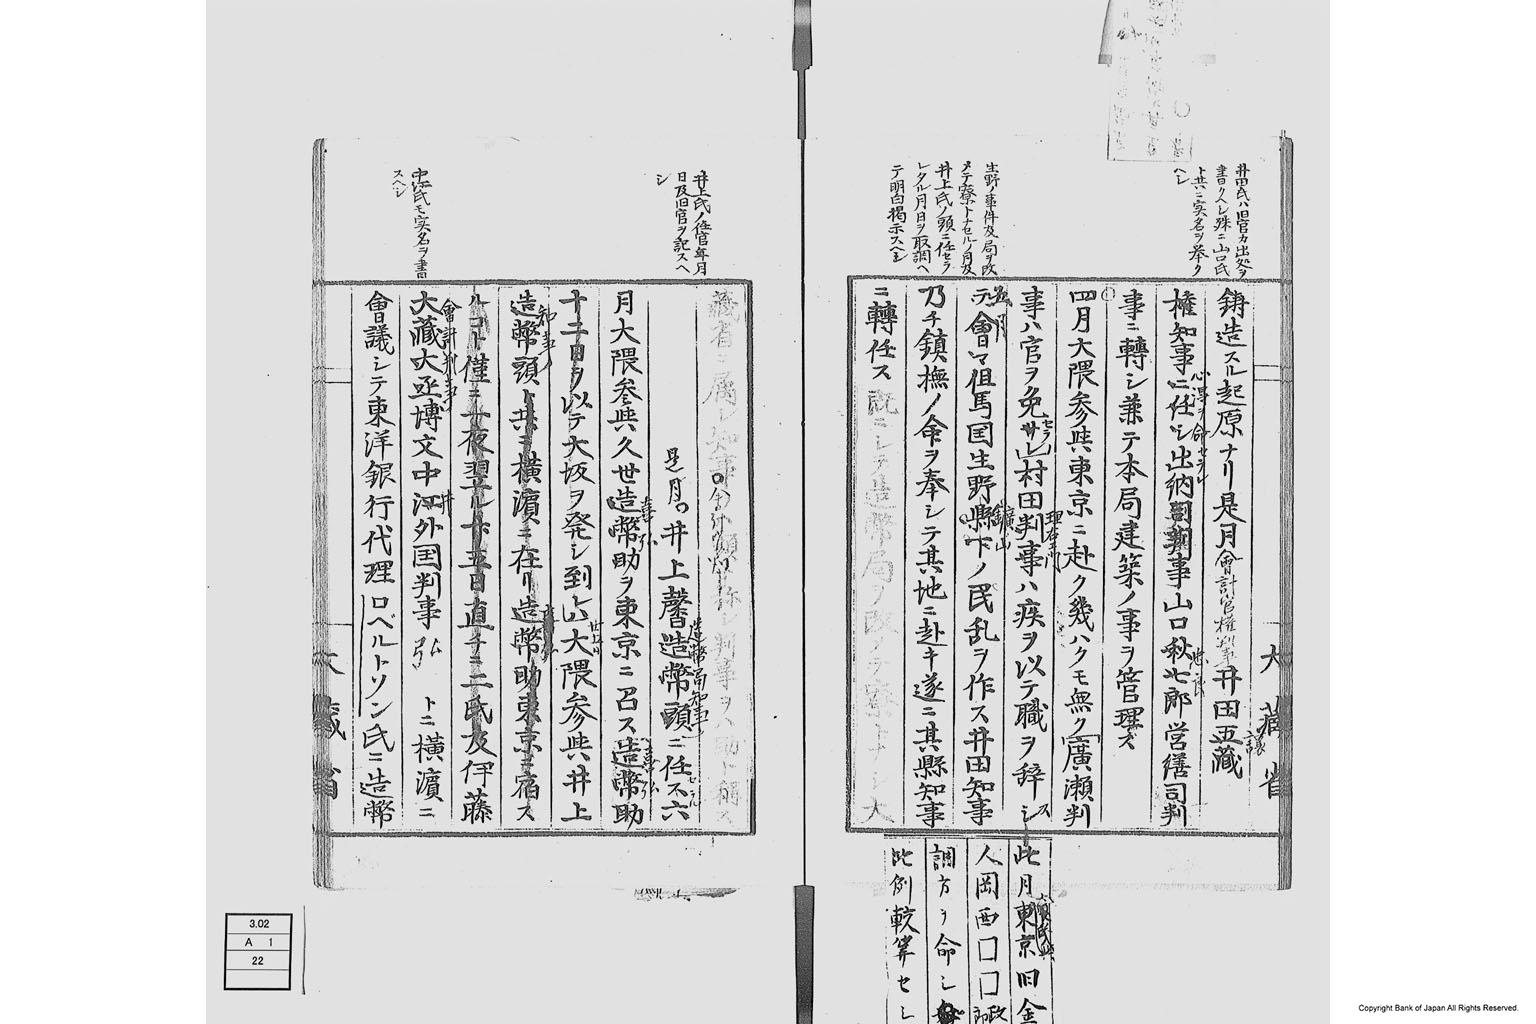 井田氏ハ旧官カ出処ヲ
書クヘシ殊ニ山口氏
ト共ニ実名ヲ挙ク
ヘシ
生野ノ事件及局ヲ改
メテ寮トナセルノ月及
井上氏ノ頭ニ任セラ
レタル月日ヲ取調ヘ
テ明白掲示スヘシ
鋳造スル起原ナリ是月會計官権判事井田五藏
譲
権知事ニ任シ出納司判事山口秋七郎営繕司判
心得ヲ命セラル
忠良
事ニ轉シ兼テ本局建築ノ事ヲ管理ス
四月大隈参與東京ニ赴ク幾ハクモ無ク廣瀬判
事ハ官ヲ免サレ村田判事ハ疾ヲ以テ職ヲ辞シ
セラル
理右衛門
ス
テ會日マ但馬国生野縣下ノ民乱ヲ作ス井田知事
五月
鑛山
乃チ鎮撫ノ命ヲ奉シテ其地ニ赴キ遂ニ其縣知事
ニ轉任ス既ニシテ造幣局ヲ改メテ寮トナシ大
此月東京旧金
人岡西口口政
調方ヲ命シ
比例較算セシ
大藏省
井上氏ノ任官年月
日及旧官ヲ記スヘ
シ
中江氏モ実名ヲ書
スヘシ
藏省ニ属シ知事ヲ頭ト称シ判事ヲハ助ト稱ス
是月井上馨造幣頭ニ任ス六
造幣局知事
セラル
月大隈参與久世造幣助ヲ東京ニ召ス造幣助
喜弘
喜弘
十二日ヲ以テ大坂ヲ発シ到ル大隈参與井上
廿五日
造幣頭ト共ニ横濱ニ在リ造幣助東京ニ宿ス
知事
ルコト僅ニ一夜翌ル廿五日直チニ二氏及伊藤
大藏大丞博文中江外国判事弘トニ横濱ニ
會計判事
井
會議シテ東洋銀行代理ロベルトソン氏ニ造幣
大藏省
3.02
A 1
22
Copyright Bank of Japan All Rights Reserved.